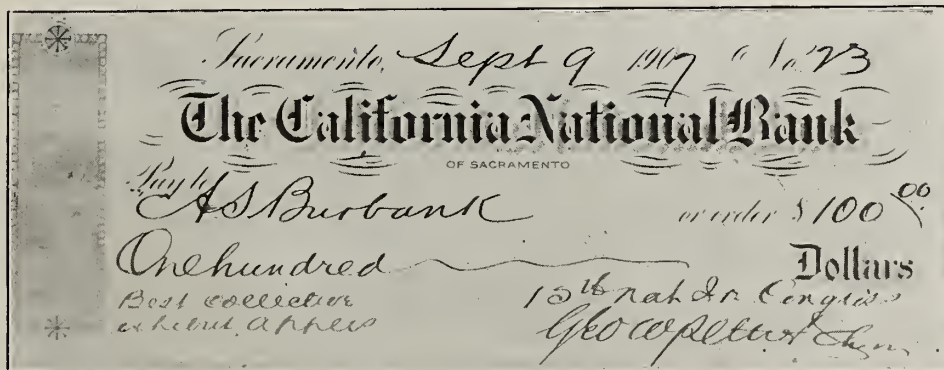 Sacramento, Sept 9 1907 No 23
The California National Bank
OF SACRAMENTO
Pay to A S Burbank or order $ 100 00
One hundred Dollars
Best collective
exhibit apples
15th Nat Irr Congress
Geo W